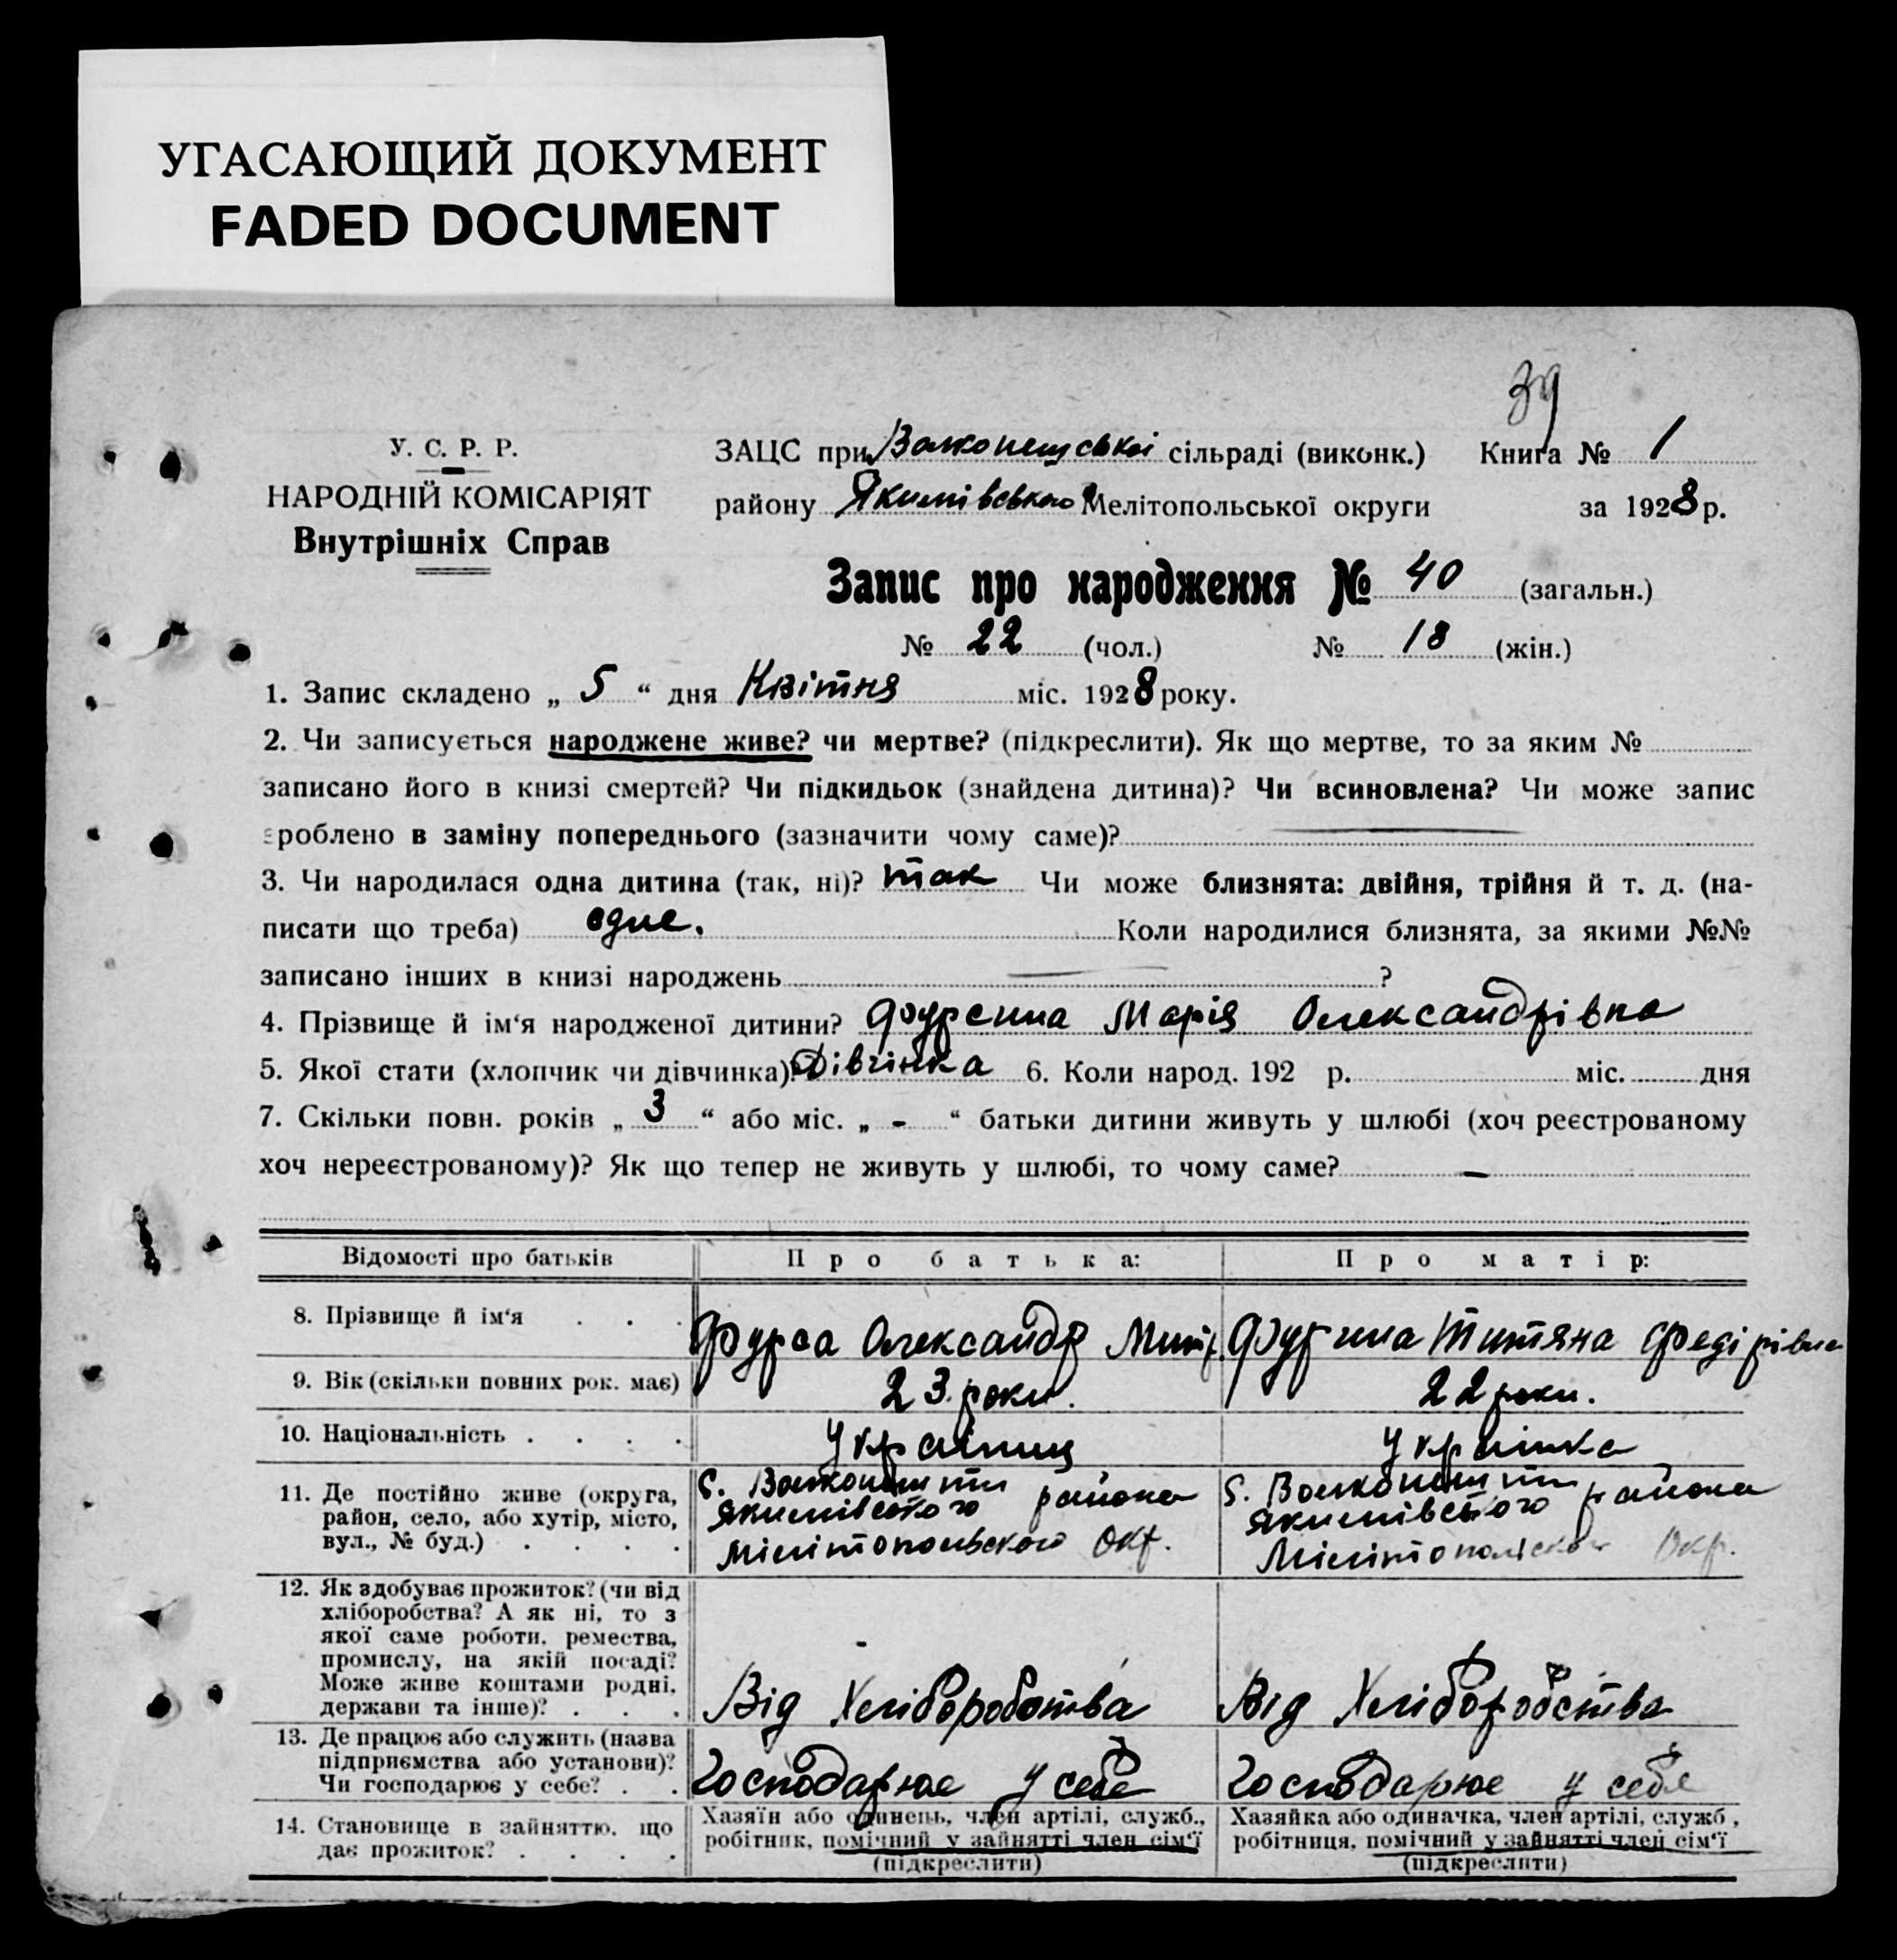 УГАСАЮЩИЙ ДОКУМЕНТ
FADED DOCUMENT
39
У. С. Р. Р.
НАРОДНІЙ КОМІСАРІЯТ
Внутрішніх Справ
ЗАЦС при сільраді (виконк.) Книга № 1
району Якимівського Мелітопольської округи за 1928 р.
Запис про народження № 40 (загальн.)
№ 22 (чол.) № 18 (жін.)
1. Запис складено „ 5 “ дня Квітня міс. 1928 року.
2. Чи записується народжене живе? чи мертве? (підкреслити). Як що мертве, то за яким №
записано його в книзі смертей? Чи підкидьок (знайдена дитина)? Чи всиновлена? Чи може запис
зроблено в заміну попереднього (зазначити чому саме)?
3. Чи народилася одна дитина (так, ні)? так Чи може близнята: двійня, трійня й т. д. (на-
писати що треба) одне. Коли народилися близнята, за якими №№
записано інших в книзі народжень ?
4. Прізвище й ім‘я народженої дитини? Фурсина Марія Олександрівна
5. Якої стати (хлопчик чи дівчинка)? Дівчінка 6. Коли народ. 192 р. міс. дня
7. Скільки повн. років „ 3 “ або міс. „ - “ батьки дитини живуть у шлюбі (хоч реєстрованому
хоч нереєстрованому)? Як що тепер не живуть у шлюбі, то чому саме? —
Відомості про батьків Про батька: Про матір:
8. Прізвище й ім‘я . . . Фурса Олександр Митр. Фурсина Титяна Федірівна
9. Вік (скільки повних рок. має) 23 роки. 22 роки.
10. Національність . . . . Українец Українка
11. Де постійно живе (округа,
район, село, або хутір, місто,
вул., № буд.) . . . .
с.
Якимівського района
Мілітопольского Окр.
с.
Якимівського района
Мілітопольского Окр.
12. Як здобуває прожиток? (чи від
хліборобства? А як ні, то з
якої саме роботи, ремества,
промислу, на якій посаді?
Може живе коштами родні,
держави та інше)? . . .
Від Хліборобства Від Хліборобства
13. Де працює або служить (назва
підприємства або установи)?
Чи господарює у себе? . .
Господарює у себе Господарює у себе
14. Становище в зайняттю, що
дає прожиток? . . . .
Хазяїн або одинець, член артілі, служб.,
робітник, помічний у зайнятті член сім‘ї
(підкреслити)
Хазяйка або одиначка, член артілі, служб.,
робітниця, помічний у зайнятті член сім‘ї
(підкреслити)